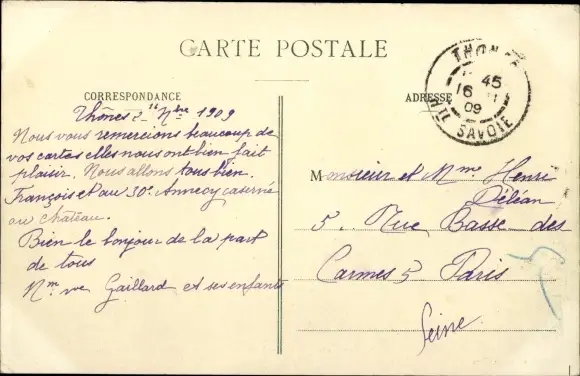 CARTE POSTALE
CORRESPONDANCE
Thônes 16 Nbre 1909
Nous vous remercions beaucoup de
vos cartes elles nous ont bien fait
plaisir. Nous allons tous bien.
François et au 30e Annecy caserne
au chateau.
Bien le bonjour de la part
de tous
Nme vve Gaillard et ses enfants
ADRESSE
Monsieur et Mme Henri
Déléan
5. Rue Basse des
Carmes 5 Paris
Seine.
45
16
09
HTE SAVOIE